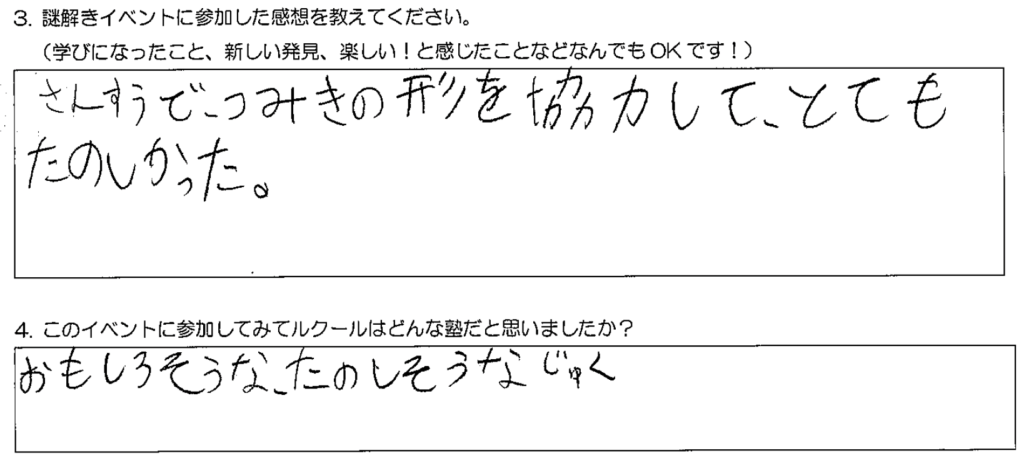 3. 謎解きイベントに参加した感想を教えてください。
（学びになったこと、新しい発見、楽しい！と感じたことなどなんでも OK です！）
さんすうで、つみきの形を協力して、とても
たのしかった。
4. このイベントに参加してみてルクールはどんな塾だと思いましたか？
おもしろそうな、たのしそうなじゅく